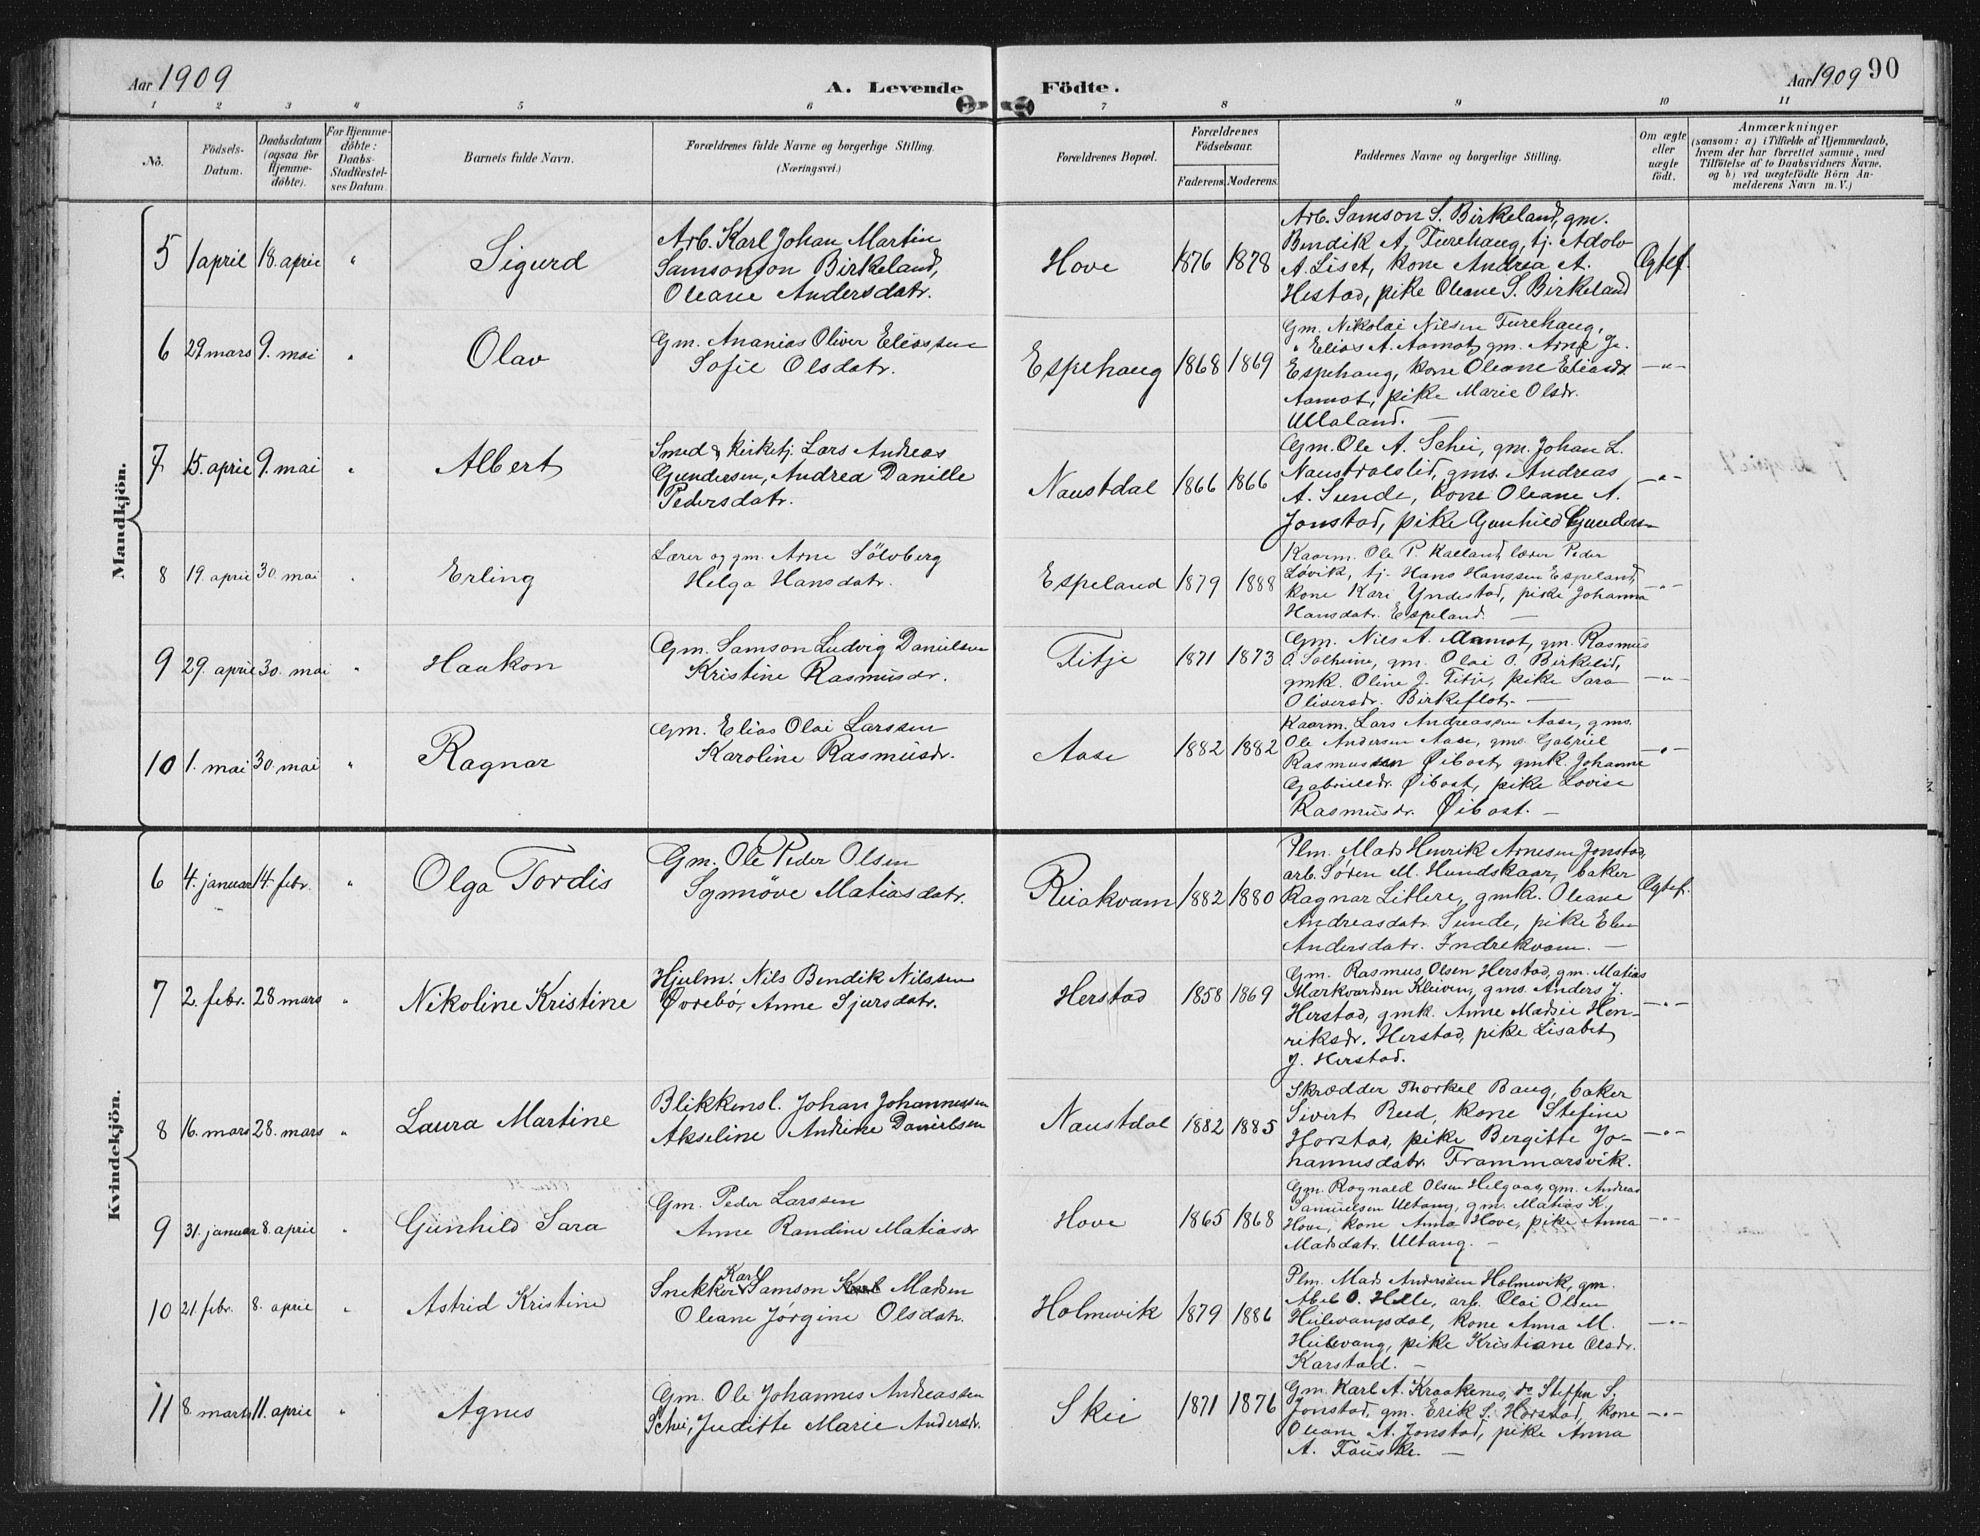 Aar 1909
A. Levende
Födte.
Aar 1909
90
1 2 3 4 5 6 7 8 9 10 11
No.
Födsels-
Datum.
Daabsdatum
(ogsaa for
Hjemme-
döbte).
For Hjemme-
döbte:
Daabs-
Stadfæstel-
ses Datum.
Barnets fulde Navn.
Forældrenes fulde Navne og borgerlige Stilling.
(Næringsvei.)
Forældrenes Bopæl.
Forældrenes
Födselsaar.
Faderens. Moderens.
Faddernes Navne og borgerlige Stilling.
Om ægte
eller
uægte
födt.
Anmærkninger
(saasom: a) i Tilfælde af Hjemmedaab,
hvem der har forrettet samme, med
Tilföielse af to Daabsvidners Navne,
og b) ved uægtefödte Börn An-
melderens Navn m. V.)
Mandkjön.
5 1 april 18. april " Sigurd
Arb. Karl Johan Martin
Samsonson Birkeland,
Oleane Andersdatr.
Hove 1876 1878
Arb. Samson S. Birkeland, gm.
Bendik A. Furehaug, tj. Adolv
A. Liset, kone Andrea A.
Hestad, pike Oleane S. Birkeland
Ægtef.
6 29 mars 9. mai " Olav
Gm. Ananias Oliver Eliassen
Sofie Olsdatr.
Espehaug 1868 1869
Gm. Nikolai Nilsen Furehaug,
" Elias A. Aamot, gm. Arne J.
Espehaug, kone Oleane Eliasdr.
Aamot, pike Marie Olsdr.
Ullaland. —
— " —
7 15. april 9. mai " Albert
Smed & kirketj. Lars Andreas
Gundersen, Andrea Danille
Pedersdatr.
Naustdal 1866 1866
Gm. Ole A. Schei, gm. Johan L.
Naustdalslid, gms. Andreas
A. Sunde, kone Oleane A.
Jonstad, pike Gunhild Gunders-
— " —
8 19. april 30. mai " Erling
Lærer og gm. Arne Sölvberg
Helga Hansdatr.
Espeland 1879 1888
Kaarm. Ole P. Kalland, lærer Peder
Løvik, tj. Hans Hanssen Espeland,
kone Kari Yndestad, pike Johanna
Hansdatr. Espeland. —
— " —
9 29. april 30. mai " Haakon
Gm. Samson Ludvig Danielsen
Kristine Rasmusdr.
Fitje 1871 1873
Gm. Nils A. Aamot, gm. Rasmus
O. Solheim, gm. Olai O. Birkelid,
gmk. Oline J. Fitje, pike Sara
Oliversdr. Birkeflot. —
— " —
10 1. mai 30 mai " Ragnar
Gm. Elias Olai Larssen
Karoline Rasmusdr.
Aase 1882 1882
Kaarm. Lars Andreassen Aase, gms.
Ole Andersen Aase, gms. Gabriel
Rasmussen Øibost, gmk. Johanne
Gabrielsdr. Øibost, pike Lovise
Rasmusdr. Øibost. —
— " —
Kvindekjön.
6 4. januar 14. febr. " Olga Tordis
Gm. Ole Peder Olsen
Synnöve Matiasdatr.
Reiakvam 1882 1880
Plm. Mads Henrik Arnesen Jonstad,
arb. Søren M. Hundskaar, baker
Ragnar Litlere, gmk. Oleane
Andreasdatr. Sunde, pike Elen
Andersdatr. Indrekvam. —
Ægtef.
7 2. febr. 28 mars " Nikoline Kristine
Hjulm. Nils Bendik Nilssen
Øvrebø, Anne Sjursdatr.
Herstad 1858 1869
Gm. Rasmus Olsen Herstad, gm. Matias
Markvardsen Kleiven, gms. Anders J.
Herstad, gmk. Anne Madsie Hen-
riksdr. Herstad, pike Lisabet
J. Herstad.
— " —
8 16. mars 28. mars " Laura Martine
Blikkensl. Johan Johannessen
Akseline Andrine Danielsen
Naustdal 1882 1885
Skrædder Thorkel Baug, baker
Sivirt Rud, kone Stefine
Horstad, pike Bergitte Jo-
hannesdatr. Frammarsvik.
— " —
9 31. januar 8. april " Gunhild Sara
Gm. Peder Larssen
Anne Randine Matiasdr
Hove 1865 1868
Gm. Rognald Olsen Helgaas, gm. Andreas
Samuelsen Ultang, gm. Matias K.
Hove, kone Anna Hove, pike Anna
Madsdatr. Ultang. —
— " —
10 21 febr. 8. april " Astrid Kristine
Snekker Karl Samson Karl Madsen
Oleane Jørgine Olsdatr.
Holmevik 1879 1886
Plm. Mads Anderssen Holmevik, gm.
Abel O. Helle, arb. Olai Olsen
Heilevangsdal, kone Anna M.
Heilevang, pike Kristiane Olsdr.
Karstad. —
— " —
11 8. mars 11. april " Agnes
Gm. Ole Johannes Andreassen
Schei, Juditte Marie Andersdr.
Skei 1871 1876
Gm. Karl A. Kraakenes, do Steffen S.
Jonstad, gm. Erik S. Horstad, kone
Oleane A. Jonstad, pike Anna
A. Fauske. —
— " —